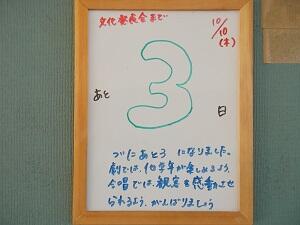 文化発表会まで
10/10
(木)
3
あと
日
づにあと3になりました。
劇では、他学年が楽しめるよう、
合唱では、観客を感動させ
られるよう、がんばりましょう